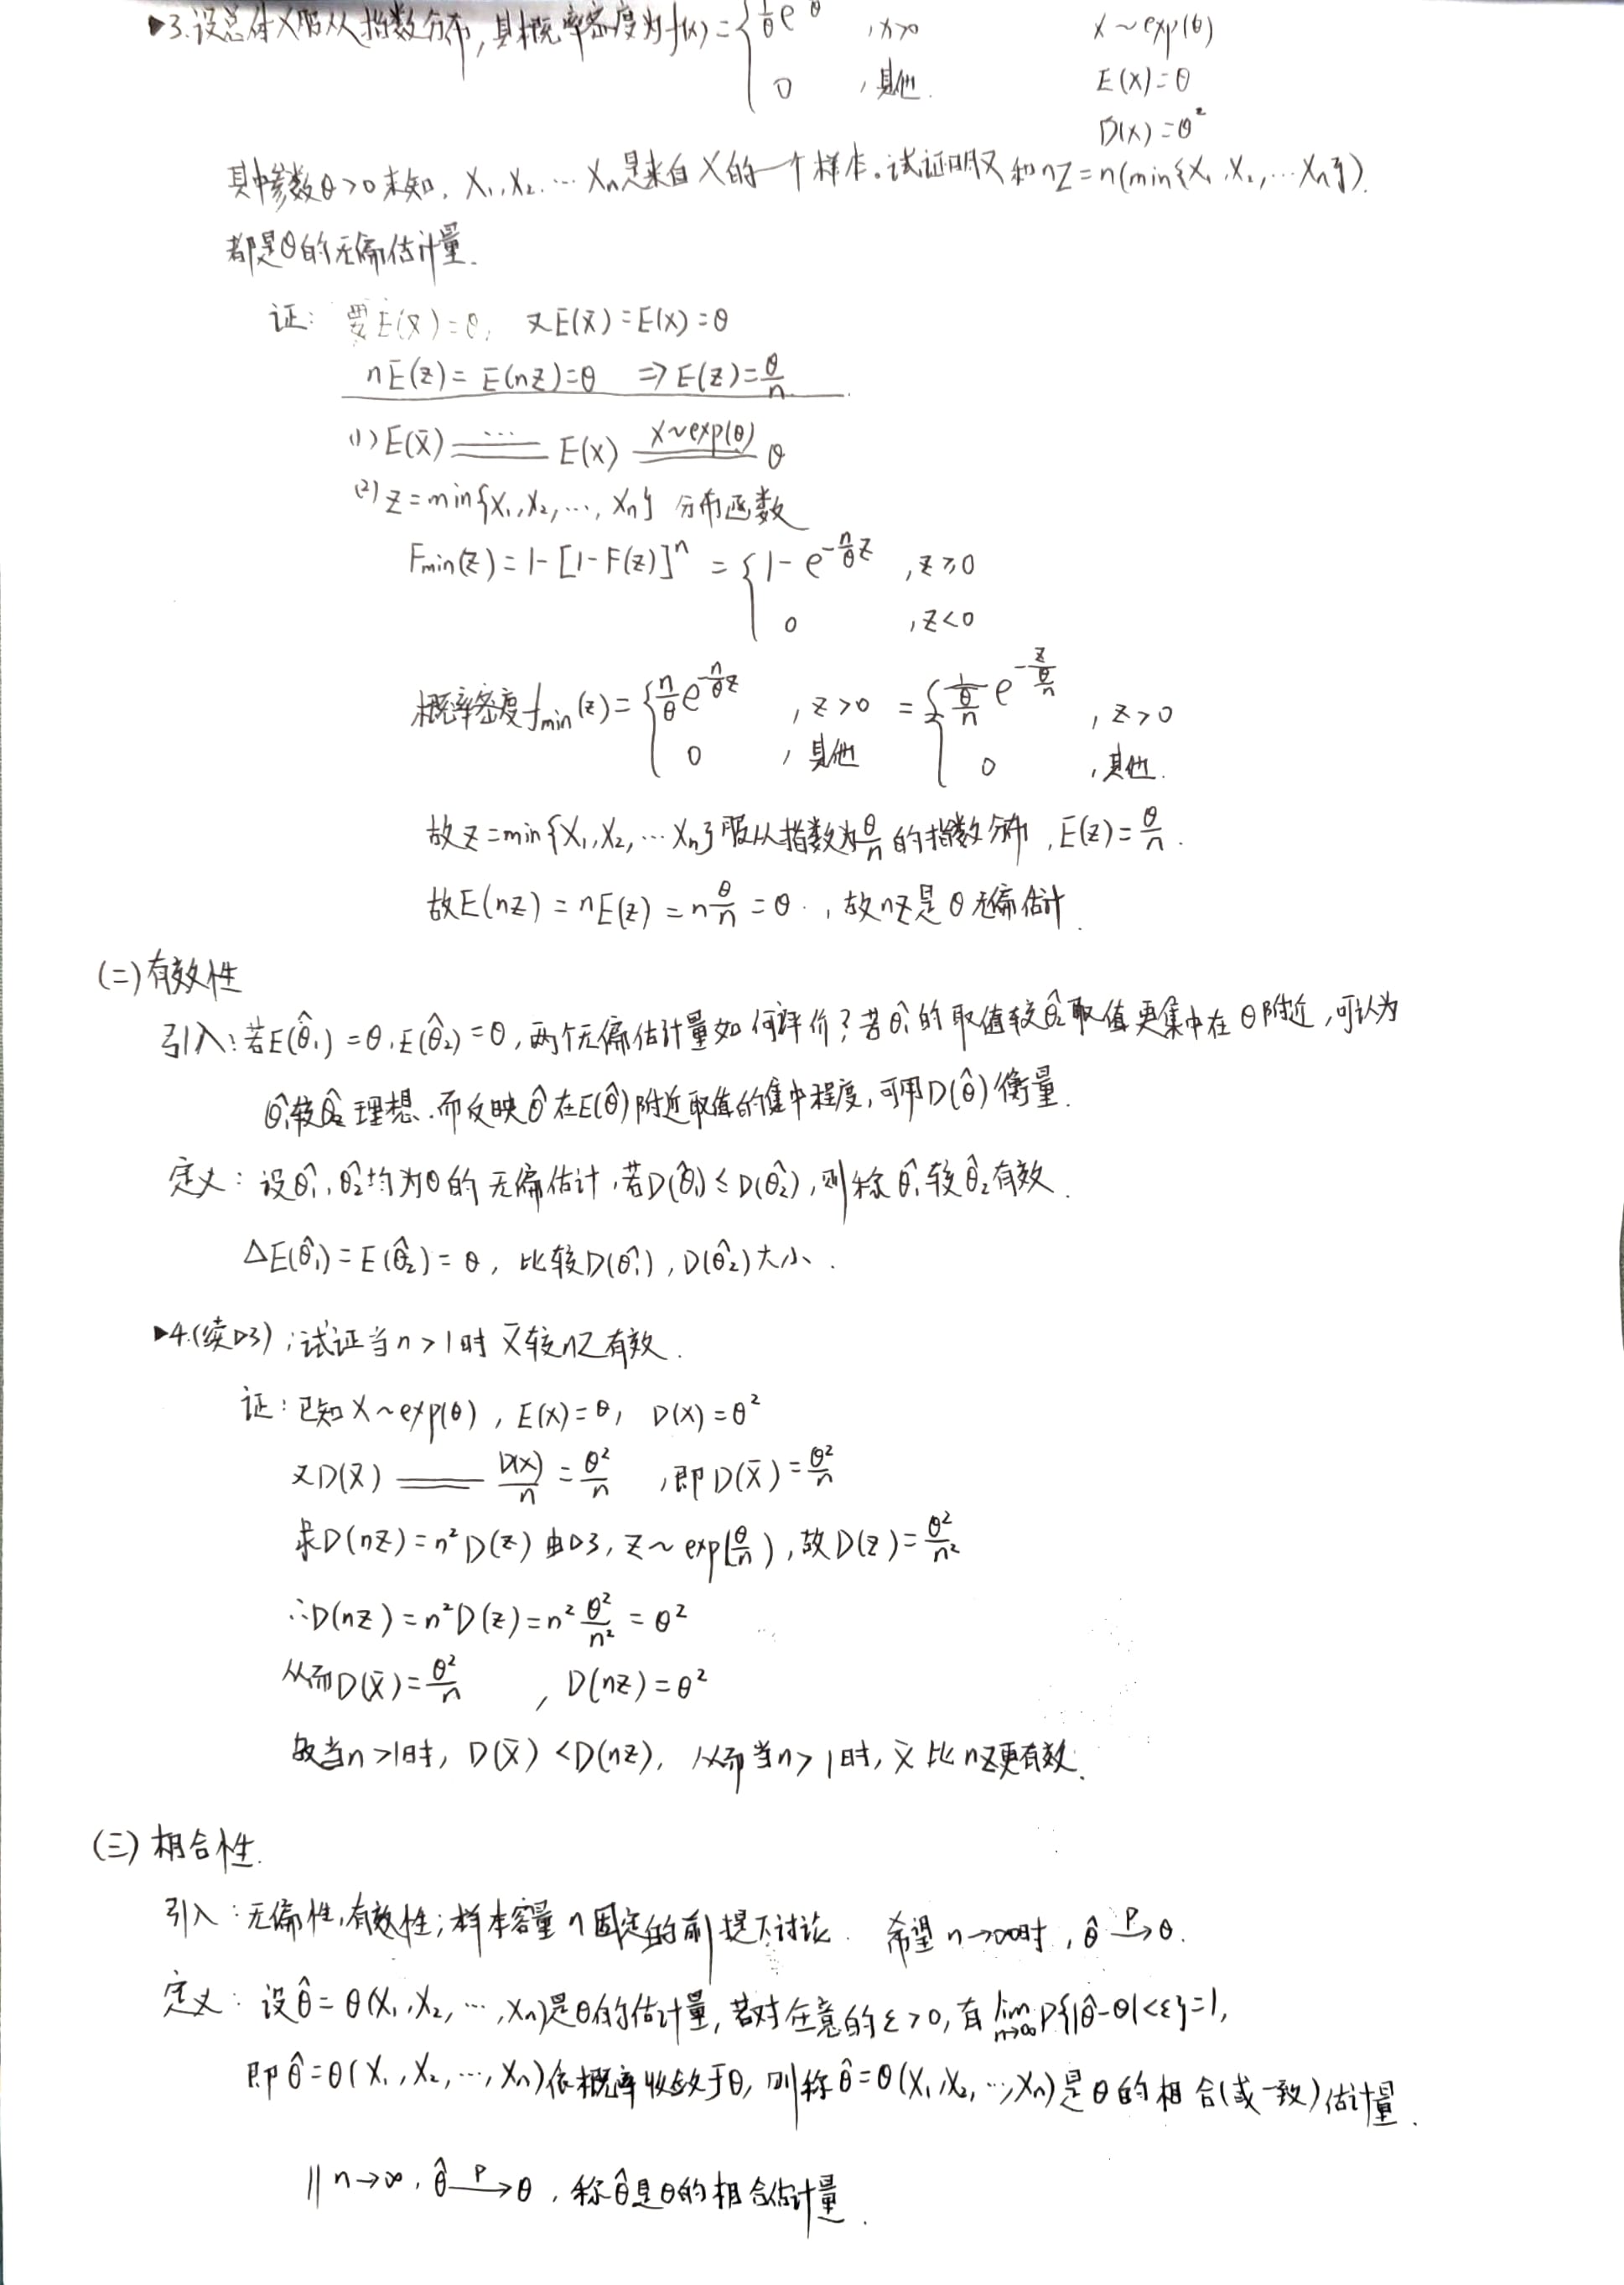 ▶3.设总体X服从指数分布,其概率密度为f(x)={ 1/θ e θ ,x>0 X~exp(θ)
0 ,其他. E(X)=θ
D(X)=θ²
其中参数θ>0未知, X₁,X₂,…Xₙ是来自X的一个样本。试证明X̄和nZ=n(min{X₁,X₂,…Xₙ}).
都是θ的无偏估计量.
证: 要E(X̄)=θ, 又E(X̄)=E(X)=θ
nE(Z)=E(nZ)=θ ⇒E(Z)=θ/n
(1) E(X̄) ==…== E(X) ==X~exp(θ)== θ
(2) Z=min{X₁,X₂,…,Xₙ} 分布函数
Fmin(z)=1-[1-F(z)]ⁿ={ 1-e^(-n/θ z) ,z≥0
0 ,z<0
概率密度fmin(z)={ n/θ e^(-n/θ z) ,z>0 ={ 1/(θ/n) e^(-z/(θ/n)) ,z>0
0 ,其他 0 ,其他.
故Z=min{X₁,X₂,…Xₙ}服从指数为θ/n的指数分布,E(Z)=θ/n.
故E(nZ)=nE(Z)=n θ/n=θ.,故nZ是θ无偏估计.
(二)有效性
引入:若E(θ̂₁)=θ,E(θ̂₂)=θ,两个无偏估计量如何评价?若θ̂₁的取值较θ̂₂取值更集中在θ附近,可认为
θ̂₁较θ̂₂理想.而反映θ̂在E(θ̂)附近取值的集中程度,可用D(θ̂)衡量.
定义:设θ̂₁,θ̂₂均为θ的无偏估计,若D(θ̂₁)≤D(θ̂₂),则称θ̂₁较θ̂₂有效.
ΔE(θ̂₁)=E(θ̂₂)=θ, 比较D(θ̂₁),D(θ̂₂)大小.
▶4.(续▷3);试证当n>1时X̄较nZ有效.
证:已知X~exp(θ),E(X)=θ, D(X)=θ²
又D(X̄) ==== D(X)/n=θ²/n ,即D(X̄)=θ²/n
求D(nZ)=n²D(Z) 由▷3, Z~exp(θ/n),故D(Z)=θ²/n²
∴D(nZ)=n²D(Z)=n² θ²/n²=θ²
从而D(X̄)=θ²/n ,D(nZ)=θ²
故当n>1时, D(X̄)<D(nZ), 从而当n>1时,X̄比nZ更有效.
(三)相合性.
引入:无偏性,有效性;样本容量n固定的前提下讨论. 希望n→∞时,θ̂ →ᴾ θ.
定义:设θ̂=θ(X₁,X₂,…,Xₙ)是θ的估计量,若对任意的ε>0,有lim n→∞ P{|θ̂-θ|<ε}=1,
即θ̂=θ(X₁,X₂,…,Xₙ)依概率收敛于θ,则称θ̂=θ(X₁,X₂,…,Xₙ)是θ的相合(或一致)估计量.
∥n→∞,θ̂ →ᴾ θ,称θ̂是θ的相合估计量.